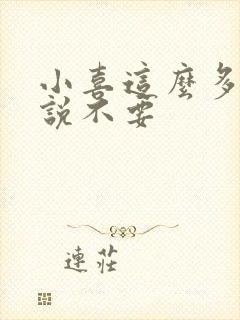 小喜這麼多
說不要
連莊